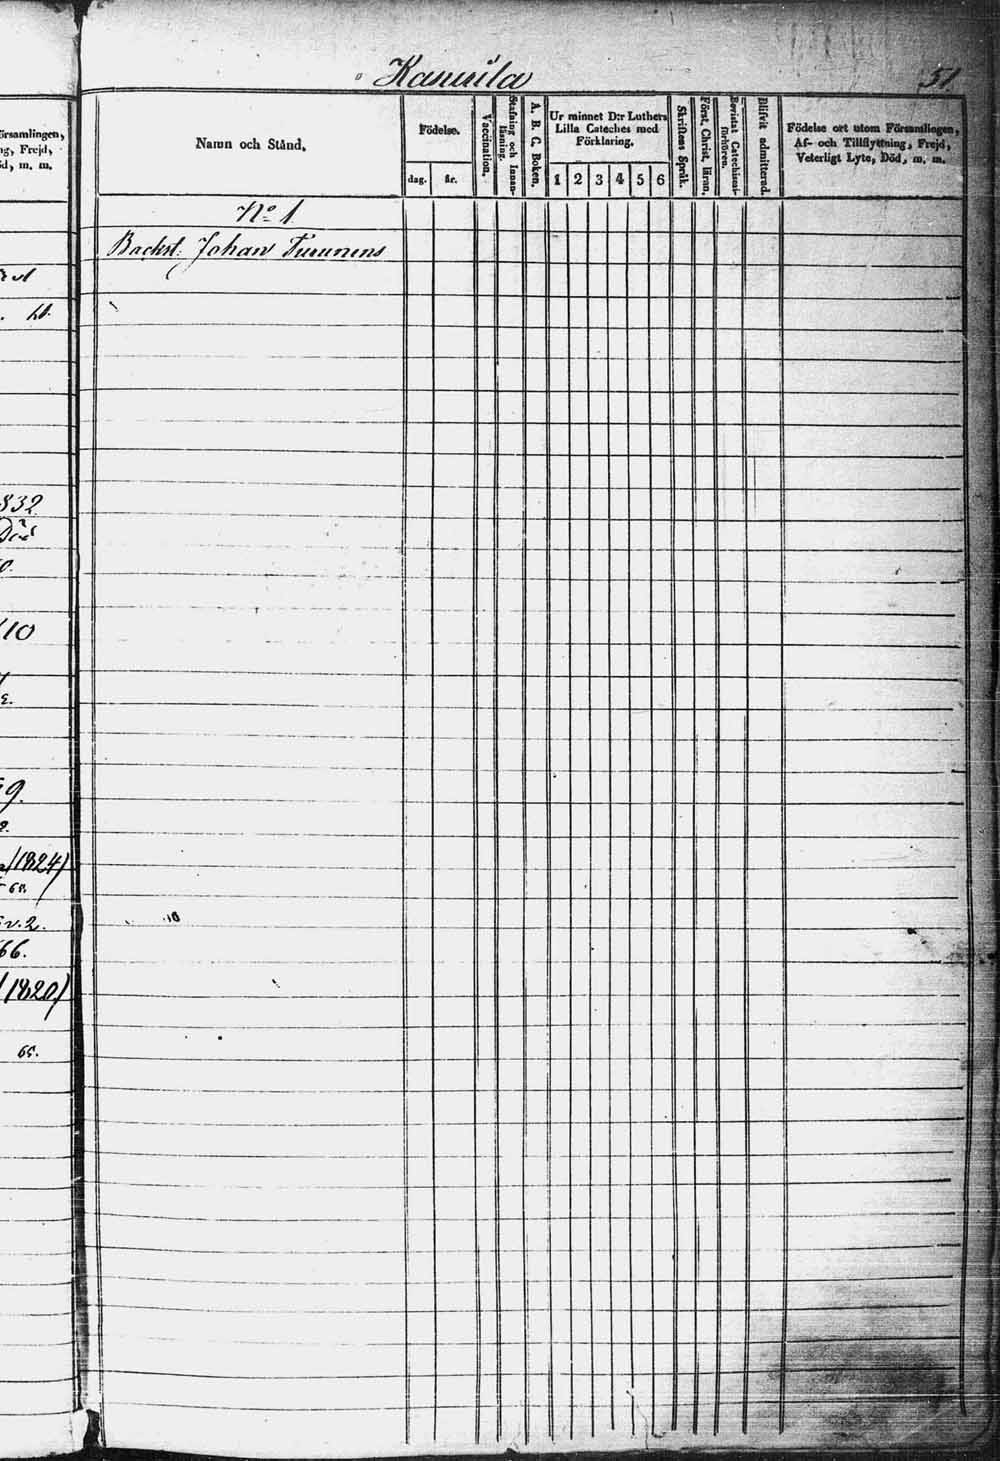 Kanuila
51.
örsamlingen,
ng, Frejd,
öd, m. m.
Namn och Stånd.
Födelse.
dag.
år.
Vaccination.
Stafning och Innan-
läsning.
A. B. C. Boken.
Ur minnet D:r Luthers
Lilla Cateches med
Förklaring.
1 2 3 4 5 6
Skriftens Språk.
Först. Christ. läran.
Bevistat Catechismi-
förhören.
Blifvit admitterad.
Födelse ort utom Församlingen,
Af- och Tillflyttning, Frejd,
Veterligt Lyte, Död, m. m.
No 1
Backst. Johan
832
Död
110
9.
/1824)
68.
v. 2.
66.
/1820/
65.